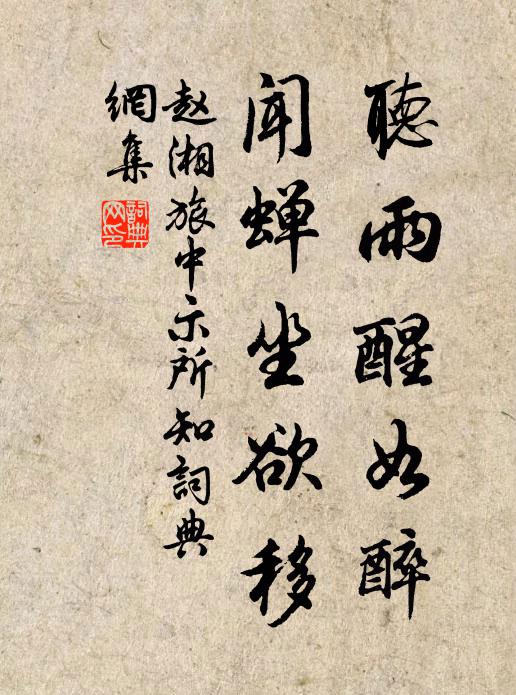 聽雨醒如醉
闻蝉坐欲移
赵湘旅中示所知詞典
網集
詞典
网印